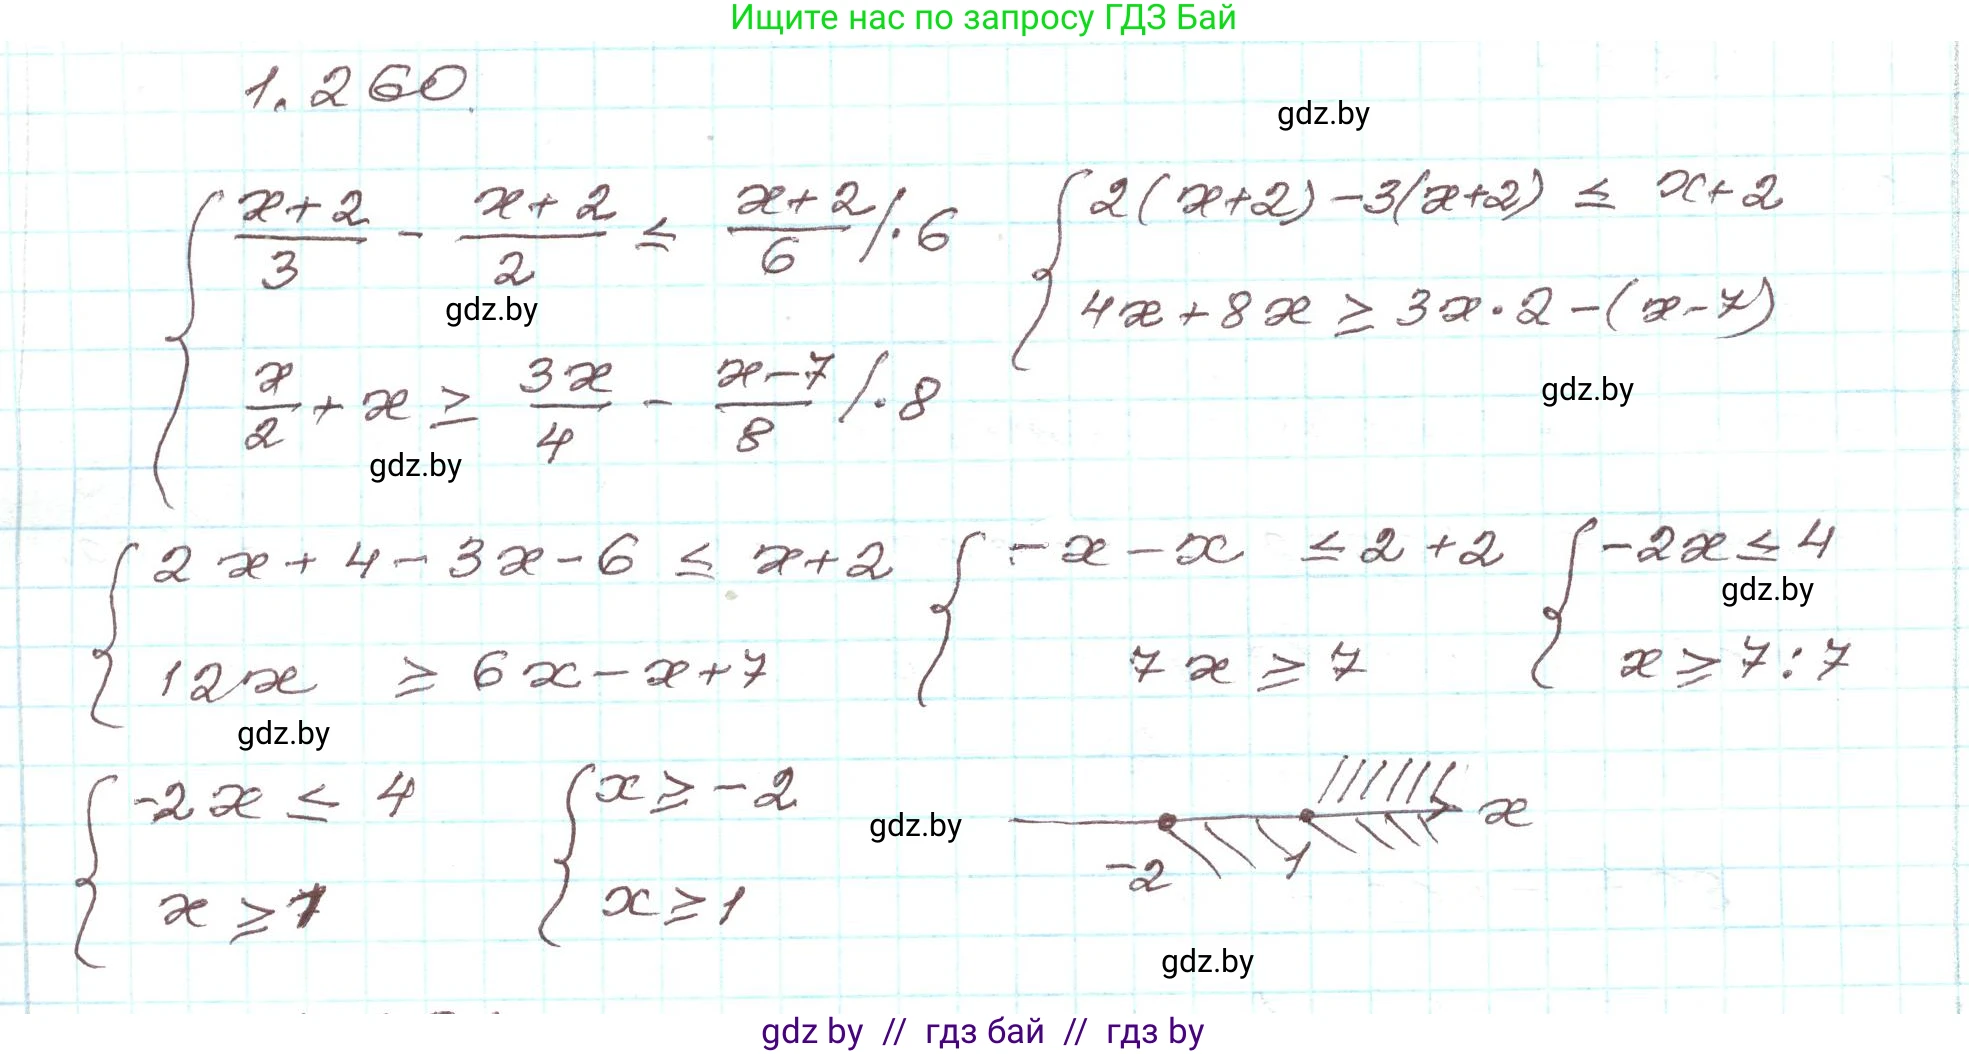 Ищите нас по запросу ГДЗ Бай
1.260.
gdz.by
{ (x+2)/3 - (x+2)/2 ≤ (x+2)/6 /·6
x/2 + x ≥ 3x/4 - (x-7)/8 /·8
gdz.by
gdz.by
{ 2(x+2)-3(x+2) ≤ x+2
4x+8x ≥ 3x·2-(x-7)
gdz.by
{ 2x+4-3x-6 ≤ x+2
12x ≥ 6x-x+7
gdz.by
{ -x-x ≤ 2+2
7x ≥ 7
{ -2x ≤ 4
gdz.by
x ≥ 7:7
{ -2x ≤ 4
x ≥ 1
{ x ≥ -2
x ≥ 1
gdz.by
-2 1 x
gdz.by
gdz by // гдз бай // гдз by